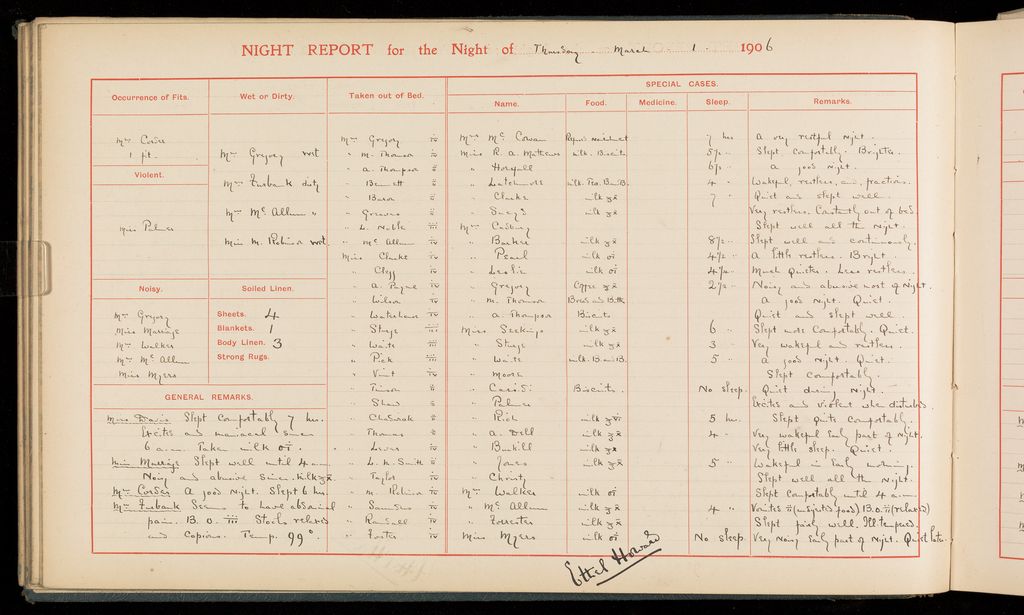 NIGHT REPORT for the Night of Thursday March 1 1906
Occurrence of Fits.
Mrs Corder
1 fit.
Violent.
Miss Palmer
Noisy.
Mrs Gregory
Miss Marriage
Mrs Walker
Mrs Mc Allum
Miss Myers
Wet or Dirty.
Mrs Gregory wet
Mrs Eurbank dirty
Mrs Mc Allum "
Miss M. Robinson wet
Soiled Linen.
Sheets. 4
Blankets. 1
Body Linen. 3
Strong Rugs.
GENERAL REMARKS.
Miss Davis Slept comfortably 7 hrs.
Excited and maniacal since
6 a.m. Taken milk
Miss Marriage Slept well until 4 a.m.
Noisy and abusive since. Milk
Mrs Corder A good night. Slept 6 hrs.
Mrs Eurbank Seems to have abdominal
pain. B.O. iii Stools relaxed
and copious. Temp. 99°.
Taken out of Bed.
Mrs Gregory
" M. Thomson
" A. Thompson
" Bennett
" Baron
" Greaves
" L. Noble
" Mc Allum
Miss Clarke
" Clegg
" A. Payne
" Wilson
" Waterhouse
" Sturge
" Waite
" Pick
" Vint
"
" Shaw
" Chadwick
" Thomas
" Lever
" L. M. Smith
" Taylor
" M. Robinson
" Saunders
" Randall
" Foster
SPECIAL CASES.
Name. Food. Medicine. Sleep. Remarks.
Mrs Mc Cowan 7 hrs A very restful night.
Miss R. A. Mathews milk. Biscuits 5½ " Slept comfortably. Brighter.
" Horsfall 6½ " A good night.
" milk. Tea. B and B. 4 " Wakeful, restless, and fractious.
" Clarke milk 7 " Quiet and slept well.
" milk Very restless. Constantly out of bed.
Mrs Cadbury Slept well all the night.
" Barker milk 8½ " Slept well and continuously.
" Pearl milk 4½ " A little restless. Bright.
" Leslie milk 4½ " Much quieter. Less restless.
" Gregory Coffee 2½ " Noisy and abusive most of night.
" M. Thomson Bread and Butter A good night. Quiet.
" A. Thompson Biscuits Quiet and slept well.
Miss milk 6 " Slept more comfortably. Quiet.
" Sturge milk 3 " Very wakeful and restless.
" Waite milk. B and B. 5 " A good night. Quiet.
" Moore Slept comfortably.
" Biscuits. No sleep. Quiet during night.
" Palmer Excited and violent when disturbed.
" Pick milk 5 hrs. Slept quite comfortably.
" A. Dell milk 4 " Very wakeful early part of night.
" milk Very little sleep. Quiet.
" Jones milk 5 " Wakeful in early morning.
" Christy Slept well all the night.
Mrs Walker milk Slept comfortably until 4 a.m.
" Mc Allum milk 4 " Vomited ii (undigested food) B.O. ii (relaxed)
" Forrester milk Slept fairly well. Ill tempered.
Miss Myers milk No sleep. Very noisy early part of night. Quiet later.
Ethel Howard